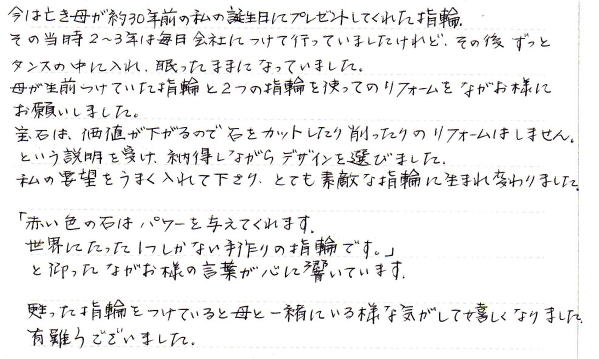 今は亡き母が約30年前の私の誕生日にプレゼントしてくれた指輪。
その当時2~3年は毎日会社につけて行っていましたけれど、その後ずっと
タンスの中に入れ、眠ったままになっていました。
母が生前つけていた指輪と2つの指輪を使ってのリフォームをながお様に
お願いしました。
宝石は、価値が下がるので石をカットしたり削ったりのリフォームはしません。
という説明を受け、納得しながらデザインを選びました。
私の要望をうまく入れて下さり、とても素敵な指輪に生まれ変わりました。
「赤い色の石はパワーを与えてくれます。
世界にたった1つしかない手作りの指輪です。」
と仰ったながお様の言葉が心に響いています。
甦った指輪をつけていると母と一緒にいる様な気がして嬉しくなりました。
有難うございました。